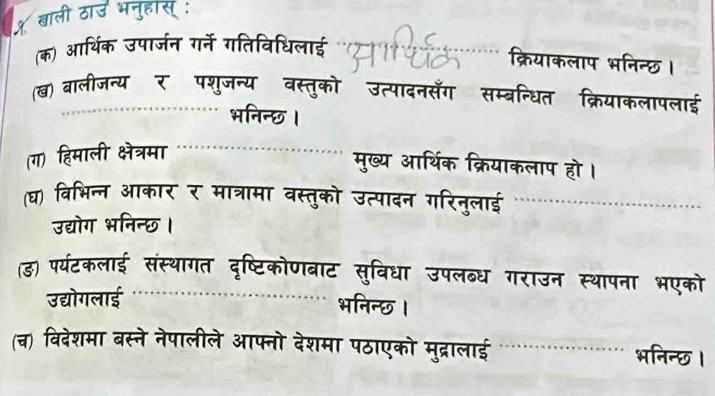 १. खाली ठाउँ भर्नुहोस् :
(क) आर्थिक उपार्जन गर्ने गतिविधिलाई आर्थिक क्रियाकलाप भनिन्छ ।
(ख) बालीजन्य र पशुजन्य वस्तुको उत्पादनसँग सम्बन्धित क्रियाकलापलाई
.............................. भनिन्छ ।
(ग) हिमाली क्षेत्रमा .............................. मुख्य आर्थिक क्रियाकलाप हो ।
(घ) विभिन्न आकार र मात्रामा वस्तुको उत्पादन गरिनुलाई ..............................
उद्योग भनिन्छ ।
(ङ) पर्यटकलाई संस्थागत दृष्टिकोणबाट सुविधा उपलब्ध गराउन स्थापना भएको
उद्योगलाई .............................. भनिन्छ ।
(च) विदेशमा बस्ने नेपालीले आफ्नो देशमा पठाएको मुद्रालाई .................... भनिन्छ ।